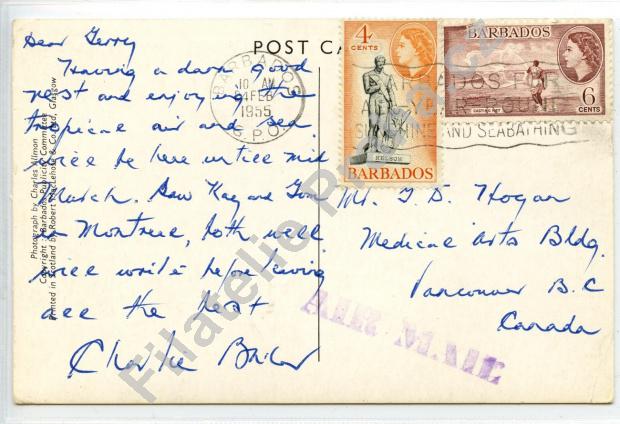 Dear Gerry
Having a darn good
rest and enjoying the
tropical air and sea.
will be here until mid
March. Saw Kay and
in Montreal, both well
will write before leaving
all the best
Charlie
POST
BARBADOS
10 AM
4 FEB
1955
G.P.O.
4 CENTS
NELSON
BARBADOS
BARBADOS
CASTING NET
6 CENTS
BARBADOS FOR
ALL YEAR ROUND
SUNSHINE AND SEABATHING
Mr. J. D. Hogan
Medical Arts Bldg.
Vancouver B.C
Canada
AIR MAIL
Photograph by Charles Allmon
Copyright: Barbados Publicity Committee
Printed in Scotland by Robert MacLehose & Co. Ltd., Glasgow
Filatelie